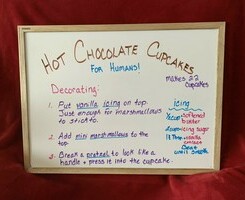 HOT CHOCOLATE CUPCAKES
FOR HUMANS!
makes 22
cupcakes
Decorating:
1. Put vanilla icing on top.
Just enough for marshmallows
to stick to.
2. Add mini marshmallows to the
top.
3. Break a pretzel to look like a
handle + press it into the cupcake.
Icing
softened
butter
icing sugar
vanilla
until smooth